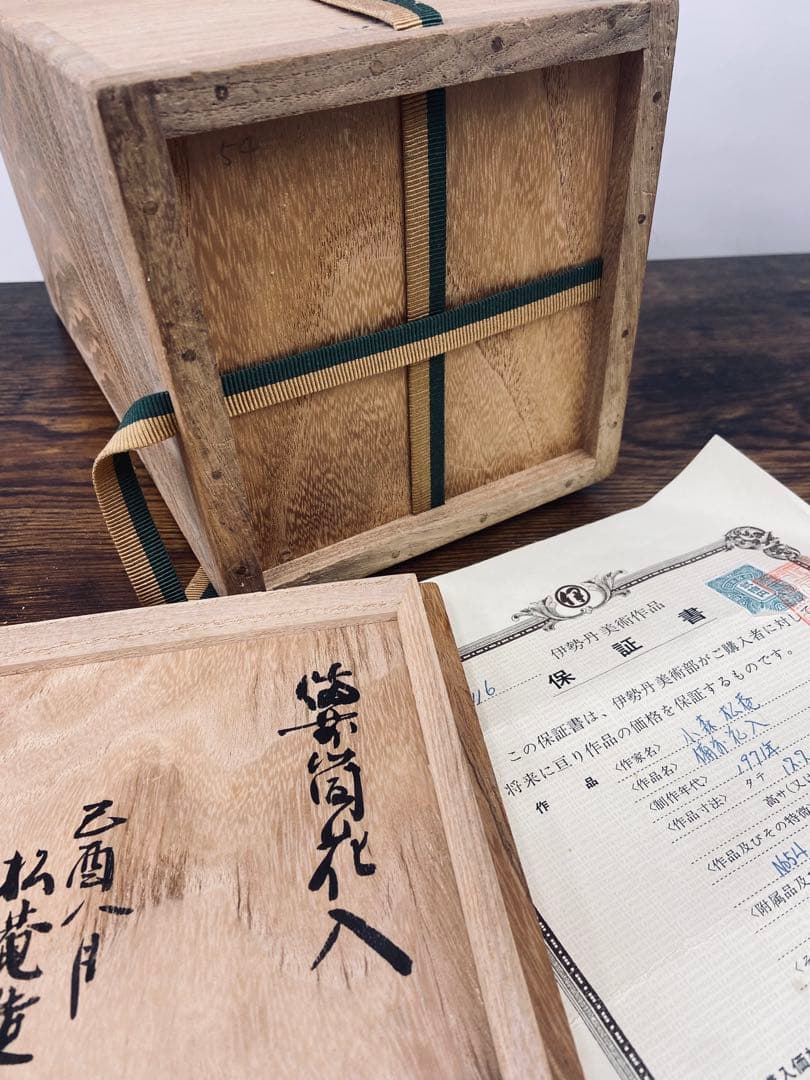 54
備前筒花入
己酉八月
松菴造
伊
伊勢丹 美術作品
保証書
この保証書は、伊勢丹美術部がご購入者に対し
将来に亘り作品の価格を保証するものです。
作品 〈作家名〉 小森松菴
〈作品名〉 備前花入
〈制作年代〉 197年
〈作品寸法〉 タテ 12.9
高サ(又
〈作品及びその特徴
No54
〈附属品及
〈そ
入価